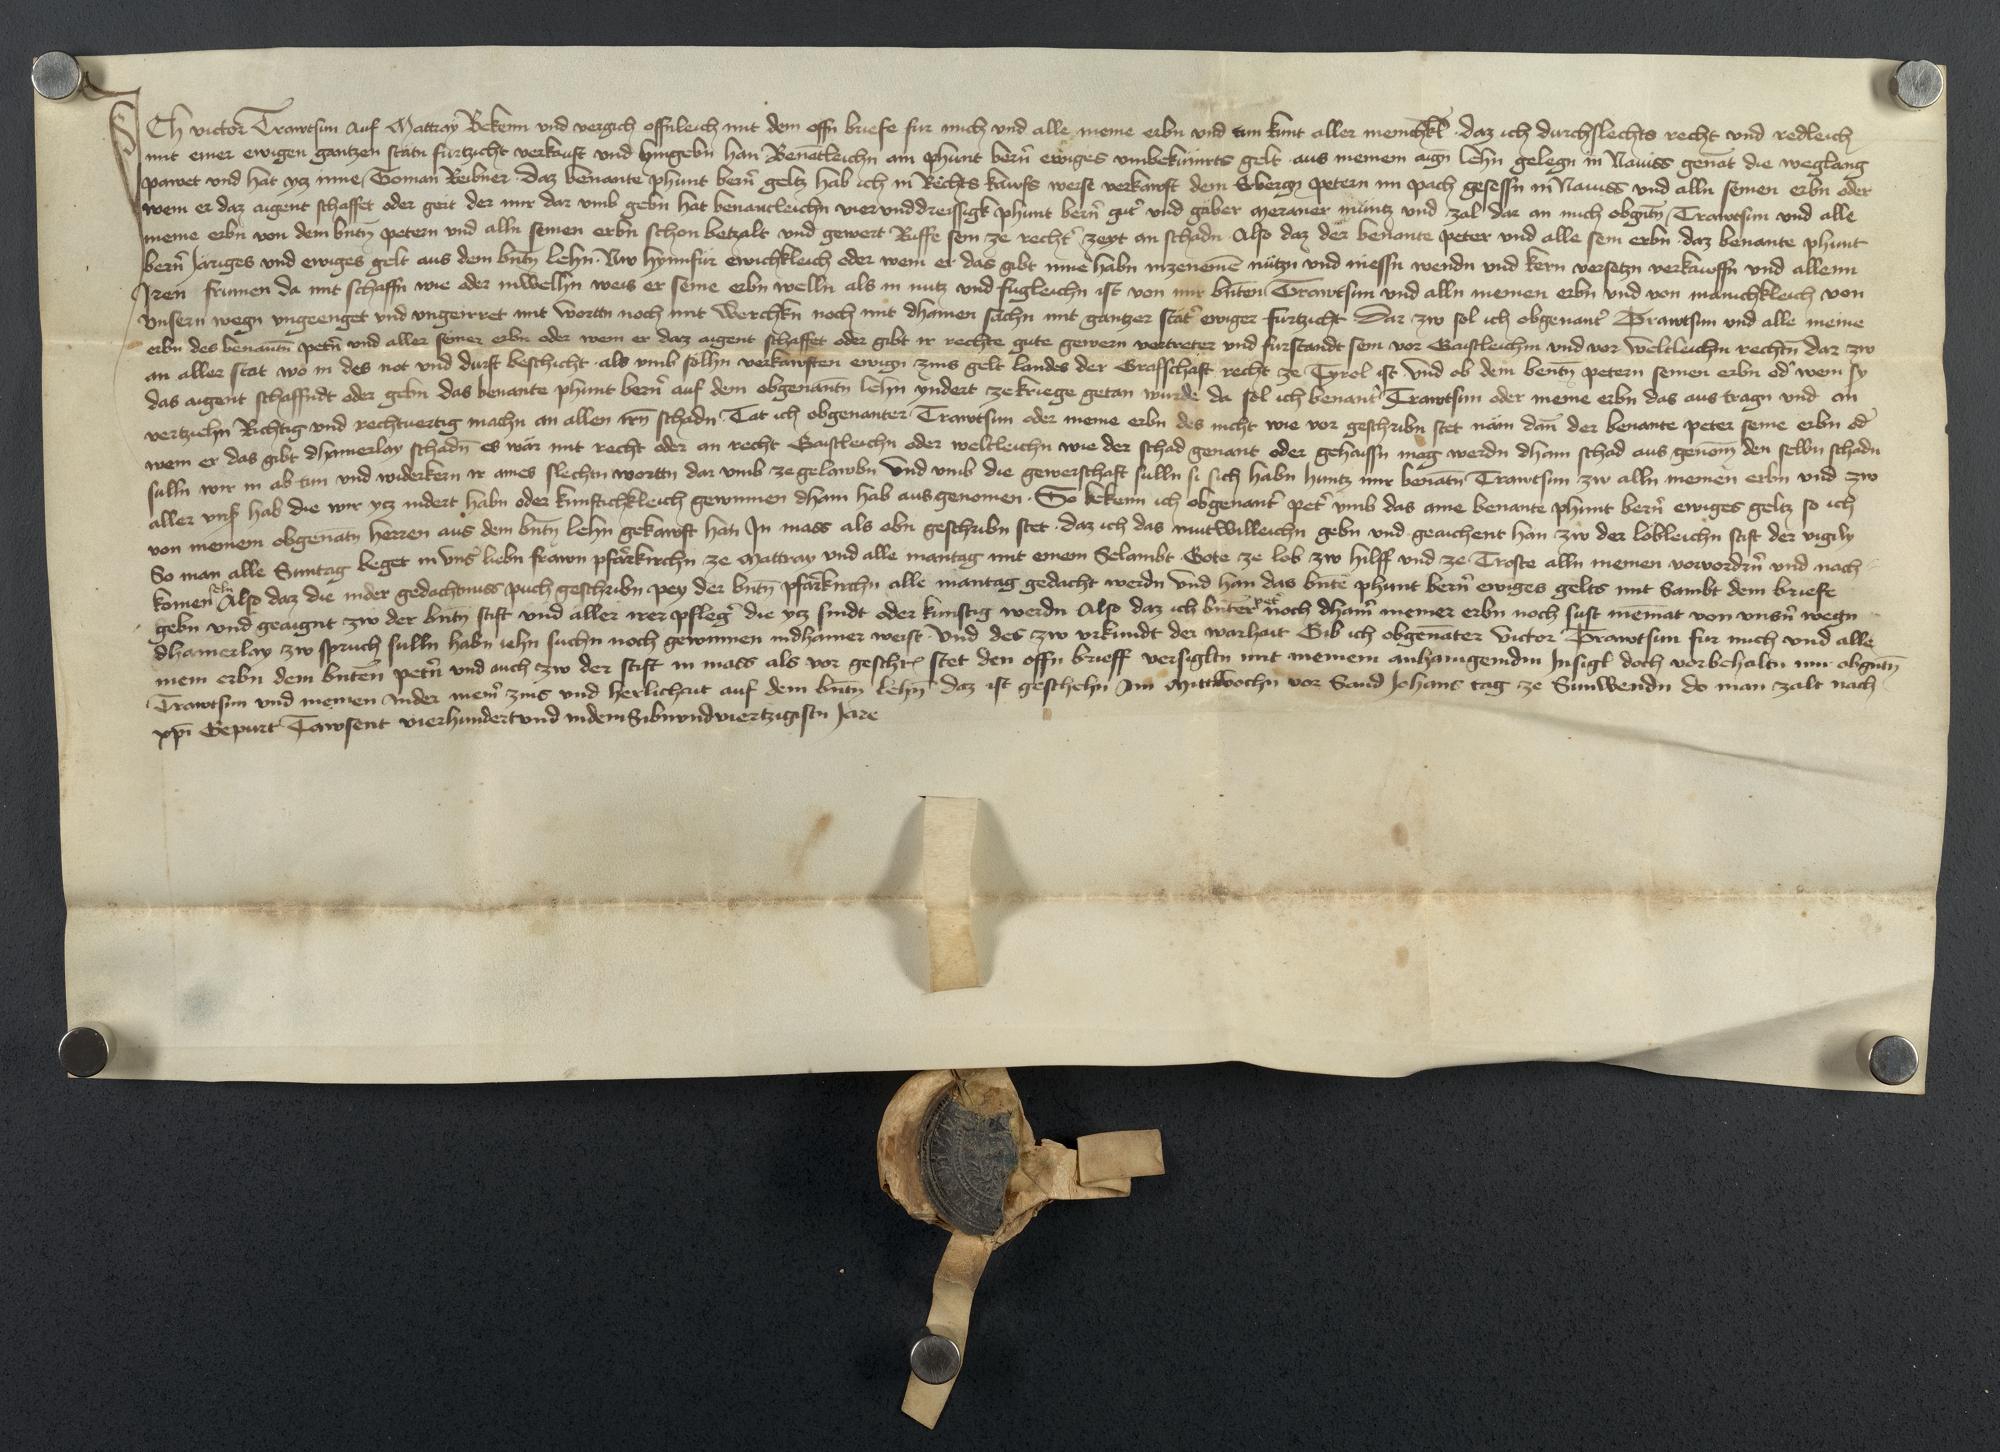 Ich victor Trawtsun Auf Mattray Bekenn und vergich offnleich mit dem offn briefe fur mich und alle meine erbn und tun kunt aller menichkl daz ich durchslechts recht und redleich
mit einer ewigen gantzen stätn furtzicht verkauft und hyngebn han Benātleichn ain phunt berñ ewiges umbekūmrts gelt aus meinem aign lehn gelegn in Naviss genāt die weglang
pawet und hat ytz inne Toman Reibner daz benante phunt berñ geltz hab ich in Rechts kawfs weiss verkawft dem Erbergn petern im pach gesessn in Naviss und alln seinen erbn oder
wem er daz aigent schaffet oder geit der mir dar umb gebn hat benantleichn vierunddreissigk phunt berñ gut und gäber meraner müntz und zal dar an mich obgntn Trawtsun und alle
meine erbn von dem bntn petern und alln seinen erbn schon betzalt und gewert Riffe sein ze recht zeyt an schadn Also daz der benante peter und alle sein erbn daz benante phunt
berñ Järiges und ewiges gelt aus dem bntn lehn Nw hynnfür ewichkleich oder wem er das gibt inne habn inzenemē nützn und niessn wendn und kern versetzn verkawffn und allenn
Iren frumen da mit schaffn wie oder inwelhn weis er seine erbn welln als in nutz und fugleichn ist von mir bnten Trawtsun und alln meinen erbn und von mänichkleich von
unsern wegn ungeenget und ungeirret mit wortn noch mit Werchkn noch mit dhainen sachn mit gantzer stät ewiger furtzicht Dar zw sol ich obgenant Trawtsun und alle meine
erbn des benantn petn und aller seiner erbn oder wem er daz aigent schaffet oder gibt ir rechte gute gewern vertreter und fürstandt sein vor Gaistleichm und vor weltleichm rechtn dar zw
an aller stat wo in des not und durft beschicht als umb solhn verkawften ewign zins gelt landes der Graffschaft recht ze Tyrol ist Und ob dem bentn petern seinen erbn od wem sy
das aigent schaffndt oder gebn das benante phunt berñ auf dem obgenantn lehn yndert ze kriege getan wurde da sol ich benant Trawtsun oder meine erbn das aus tragn und an
vertziehn Richtig und rechtvertig machn an allen irn schadn Tät ich obgenanter Trawtsun oder meine erbn des nicht wie vor geschribn stet näm dan der benante peter seine erbn od
wem er das gibt dhainerlay schadn es wär mit recht oder an recht Gaistleichn oder weltleichn wie der schad genant oder gehaissn mag werdn dhain schad aus genom den selbn schadn
sulln wir in ab tun und widerkern ir aines slechtn wortn dar umb ze gelawbn Und umb die gewerschaft sulln si sich habn huntz mir benātn Trawtsun zw alln meinen erbn und zw
aller unser hab die wir ytz indert habn oder kunftichkleich gewinnen dhain hab ausgenomen So bekenn ich obgenant pet umb das aine benante phunt berñ ewiges geltz so ich
von meinem obgenātn herren aus dem bntn lehn gekawft han In mass als obn geschribn stet daz ich das mutwilleichn gebn und geaichent han zw der lobleichn stift der vigily
So man alle Suntag beget in uns liebn frawn pfarkirchn ze Mattray und alle mantag mit einem Selambt Gote ze lob zw hilff und ze Troste alln meinen vorvordrn und nach
komen seln Also daz die inder gedachtnuss puch geschribn pey der bntn pfarkirchn alle mantag gedacht werdn Und han das bnte phunt berñ ewiges gelts mit Sambt dem briefe
gebn und geaignt zw der bntn stift und aller irer pfleger die ytz sindt oder kunftig werdn Also daz ich bnter pet noch dhainer meiner erbn noch sust niemāt von unsn wegn
dhainerlay zw spruch sulln habn iehn suchn noch gewinnen indhainer weiss Und des zw urkundt der warhait Gib ich obgenāter Victor Trawtsun fur mich und alle
mein erbn dem bnten petn und auch zw der stift in mass als vor geschr stet den offn brieff versigltn mit meinem anhangendm Insigl doch vorbehaltn mir obgntn
Trawtsun und meinen inder mein zins und herlichait auf dem bntn lehn daz ist geschehn Am Mittwochn vor Sand Johans tag ze Sunwendn do man zalt nach
xpi Gepurt Tawsent vierhundert und indem Sibnundviertzigistn Jare